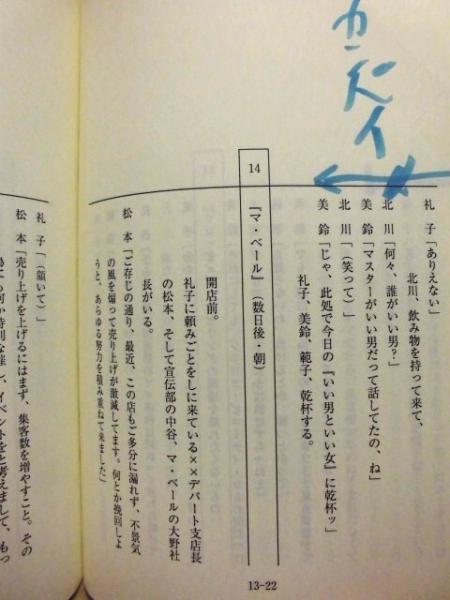 カンパイ
礼 子「ありえない」
北川、飲み物を持って来て、
北 川「何々、誰がいい男?」
美 鈴「マスターがいい男だって話してたの、ね」
北 川「(笑って)」
美 鈴「じゃ、此処で今日の『いい男といい女』に乾杯ッ」
礼子、美鈴、範子、乾杯する。
14
『マ・ベール』(数日後・朝)
開店前。
礼子に頼みごとをしに来ている××デパート支店長
の松本、そして宣伝部の中谷、マ・ベールの大野社
長がいる。
松 本「ご存じの通り、最近、この店もご多分に漏れず、不景気
の風を煽って売り上げが激減してます。何とか挽回しよ
うと、あらゆる努力を積み重ねて来ました」
礼 子「(頷いて)」
松 本「売り上げを上げるにはまず、集客数を増やすこと。その
13-22